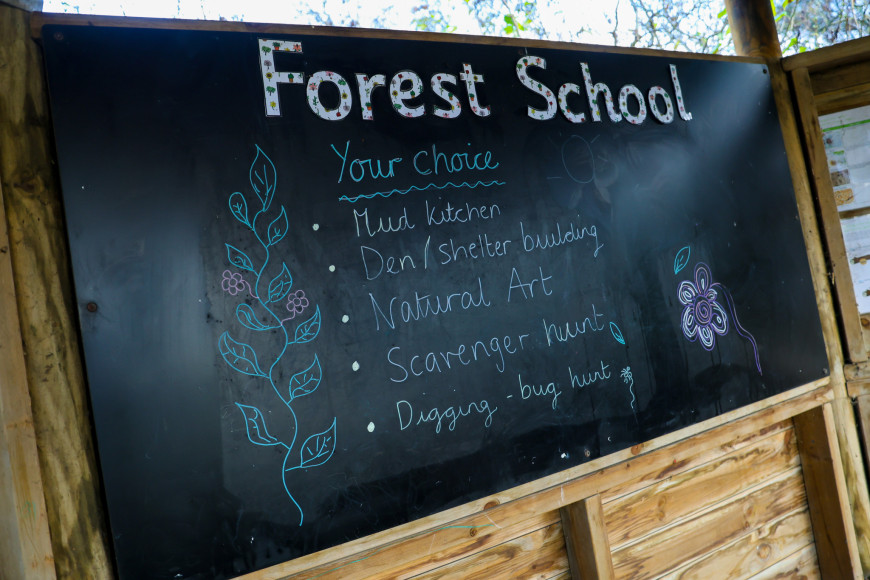 Forest School
Your choice
• Mud kitchen
• Den/shelter building
• Natural Art
• Scavenger hunt
• Digging - bug hunt